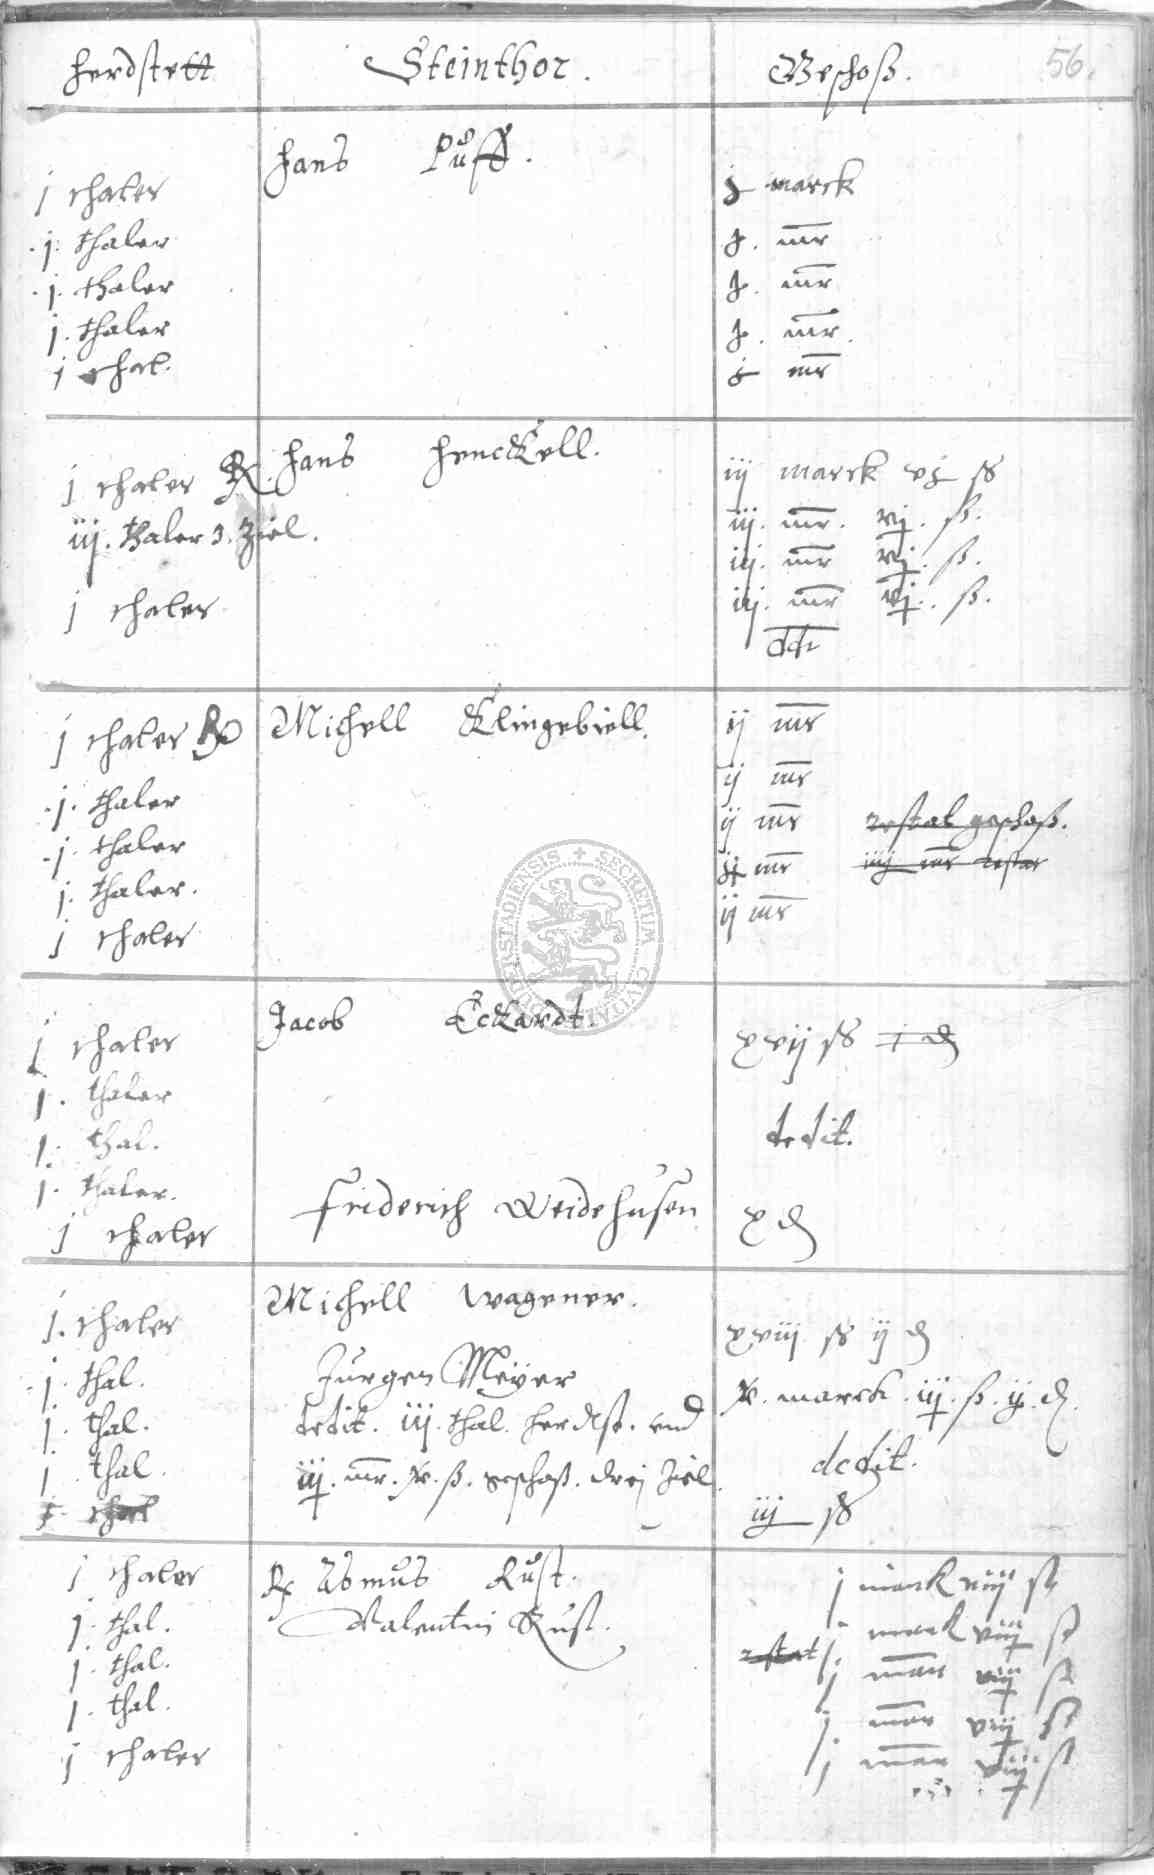 herdstett Steinthor. Geschoß. 56.
Hans Puff.
j thaler j marck
j. thaler j. mr
j. thaler j. mr
j. thaler j. mr.
j thal. j mr
j thaler Hans Henckell. iij marck vj ß
iij. thaler 3. Ziel. iij. mr. vj. ß.
iij. mr vj. ß.
j thaler iij. mr vj. ß.
ddt
j thaler Michell Klingebiell. ij mr
j. thaler ij mr
j. thaler ij mr restat geschoß.
j. thaler. ij mr iiij mr restat
j thaler ij mr
SECRETUM CIVITATIS DUDERSTADIENSIS
Jacob Eckardt.
j thaler xvij ß j d
j. thaler
j. thal. dedit.
j. thaler.
j thaler Friderich Weidehusen x d
Michell Wagener.
j. thaler xviij ß ij d
j. thal. Jurgen Meyer x. marck. iij. ß. ij. d.
j. thal. dedit. iij. thal. herdst. vnd
j thal. iij. mr. x. ß. geschoß. drej Ziel. dedit.
j. thal iij ß
j thaler Asmus Rust. j mark viij ß
j. thal. Valentin Rust. restat j mark viij ß
j. thal. j mar viij ß
j. thal. j mar viij ß
j thaler j mar viij ß